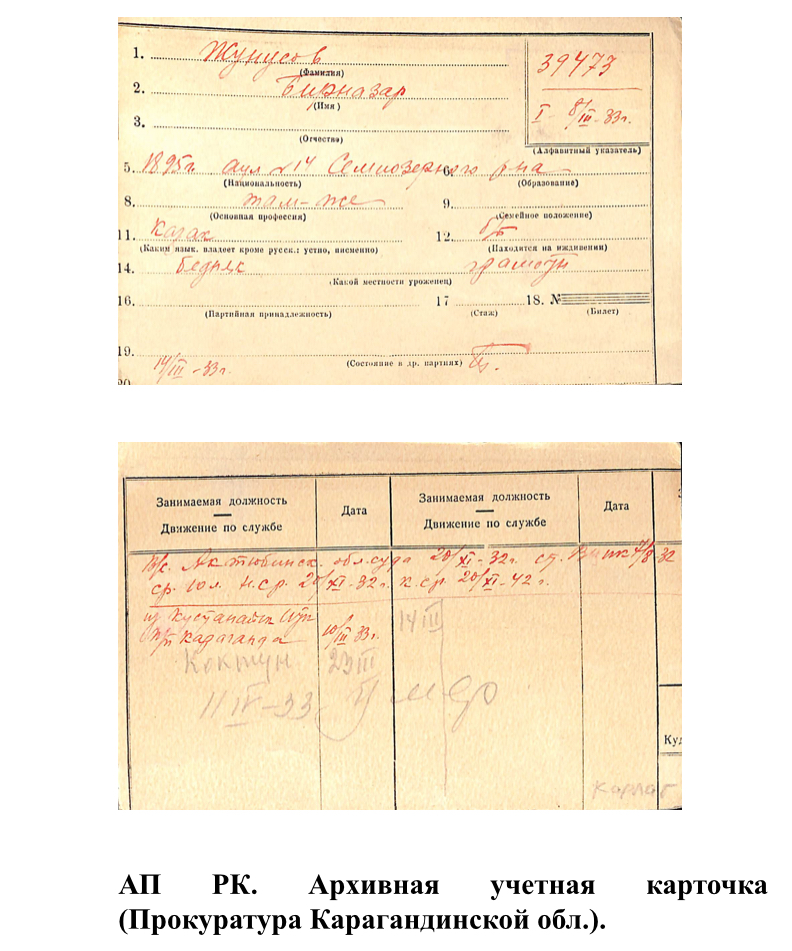 1. Жунусов
(Фамилия)
39473
2. Бирназар
(Имя)
I - 8/III-33г.
3.
(Отчество)
(Алфавитный указатель)
5. 1895г. аул №14 Семиозерного 6. р-на
(Национальность) (Образование)
8. там-же 9.
(Основная профессия) (Семейное положение)
11. Казах 12. б/п
(Каким язык. владеет кроме русск.: устно, письменно) (Находятся на иждивении)
14. бедняк грамотн
(Какой местности уроженец)
16. 17 18. №
(Партийная принадлежность) (Стаж) (Билет)
19.
14/III-33г. (Состояние в др. партиях)
20
Занимаемая должность Дата Занимаемая должность Дата
Движение по службе Движение по службе
Актюбинск. обл.суда 20/XI-32г. ст. 7/8 32
ср. 10 л. н.ср. 20/XI-32г. к.ср. 20/XI-42г.
из Кустанайск
Карагандa 10/III 33г. 14 III
23 III
11 IV-33 Умер
Куд
Карлаг
АП РК. Архивная учетная карточка
(Прокуратура Карагандинской обл.).